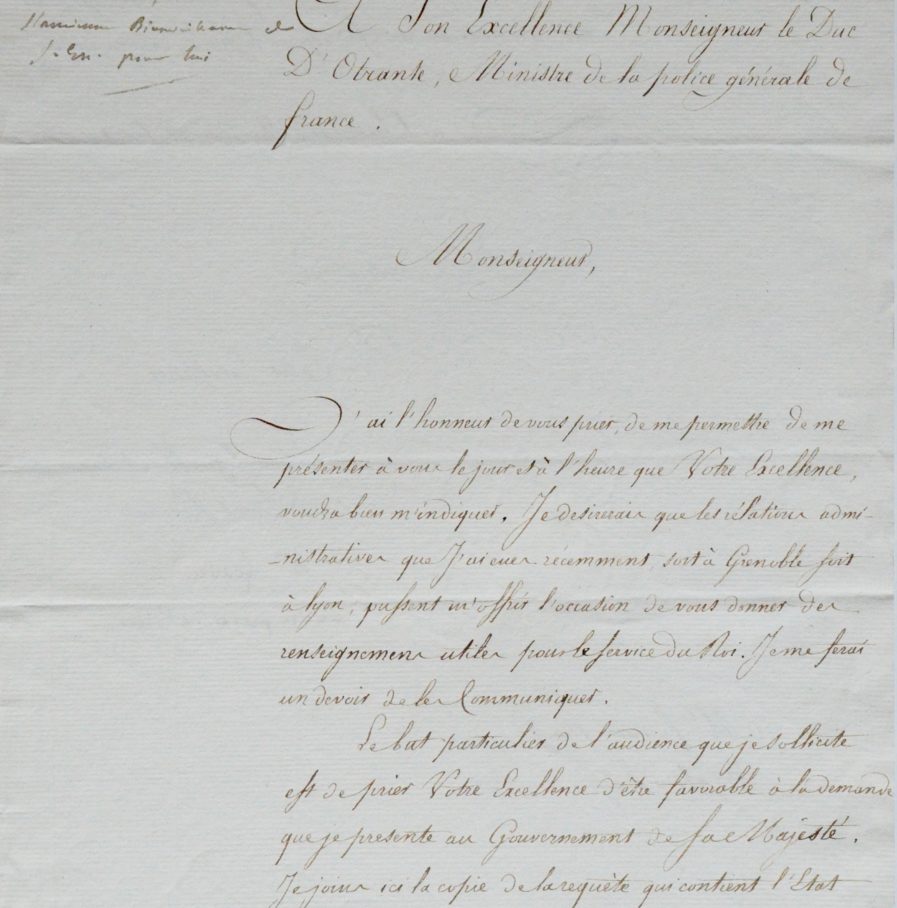 pour lui
A Son Excellence Monseigneur le Duc
D'Otrante, Ministre de la police générale de
france.
Monseigneur,
J'ai l'honneur de vous prier, de me permettre de me
présenter à vous le jour et à l'heure que Votre Excellence,
voudra bien m'indiquer. Je desirerais que les rélations admi-
-nistratives que J'ai eues récemment, soit à Grenoble soit
à lyon, pussent m'offrir l'occasion de vous donner des
renseignemens utiles pour le service du Roi. Je me ferai
un devoir de les Communiquer.
Le but particulier de l'audience que je sollicite
est de prier Votre Excellence d'être favorable à la demande
que je presente au Gouvernement de Sa Majesté.
Je joins ici la copie de la requête qui contient l'Etat